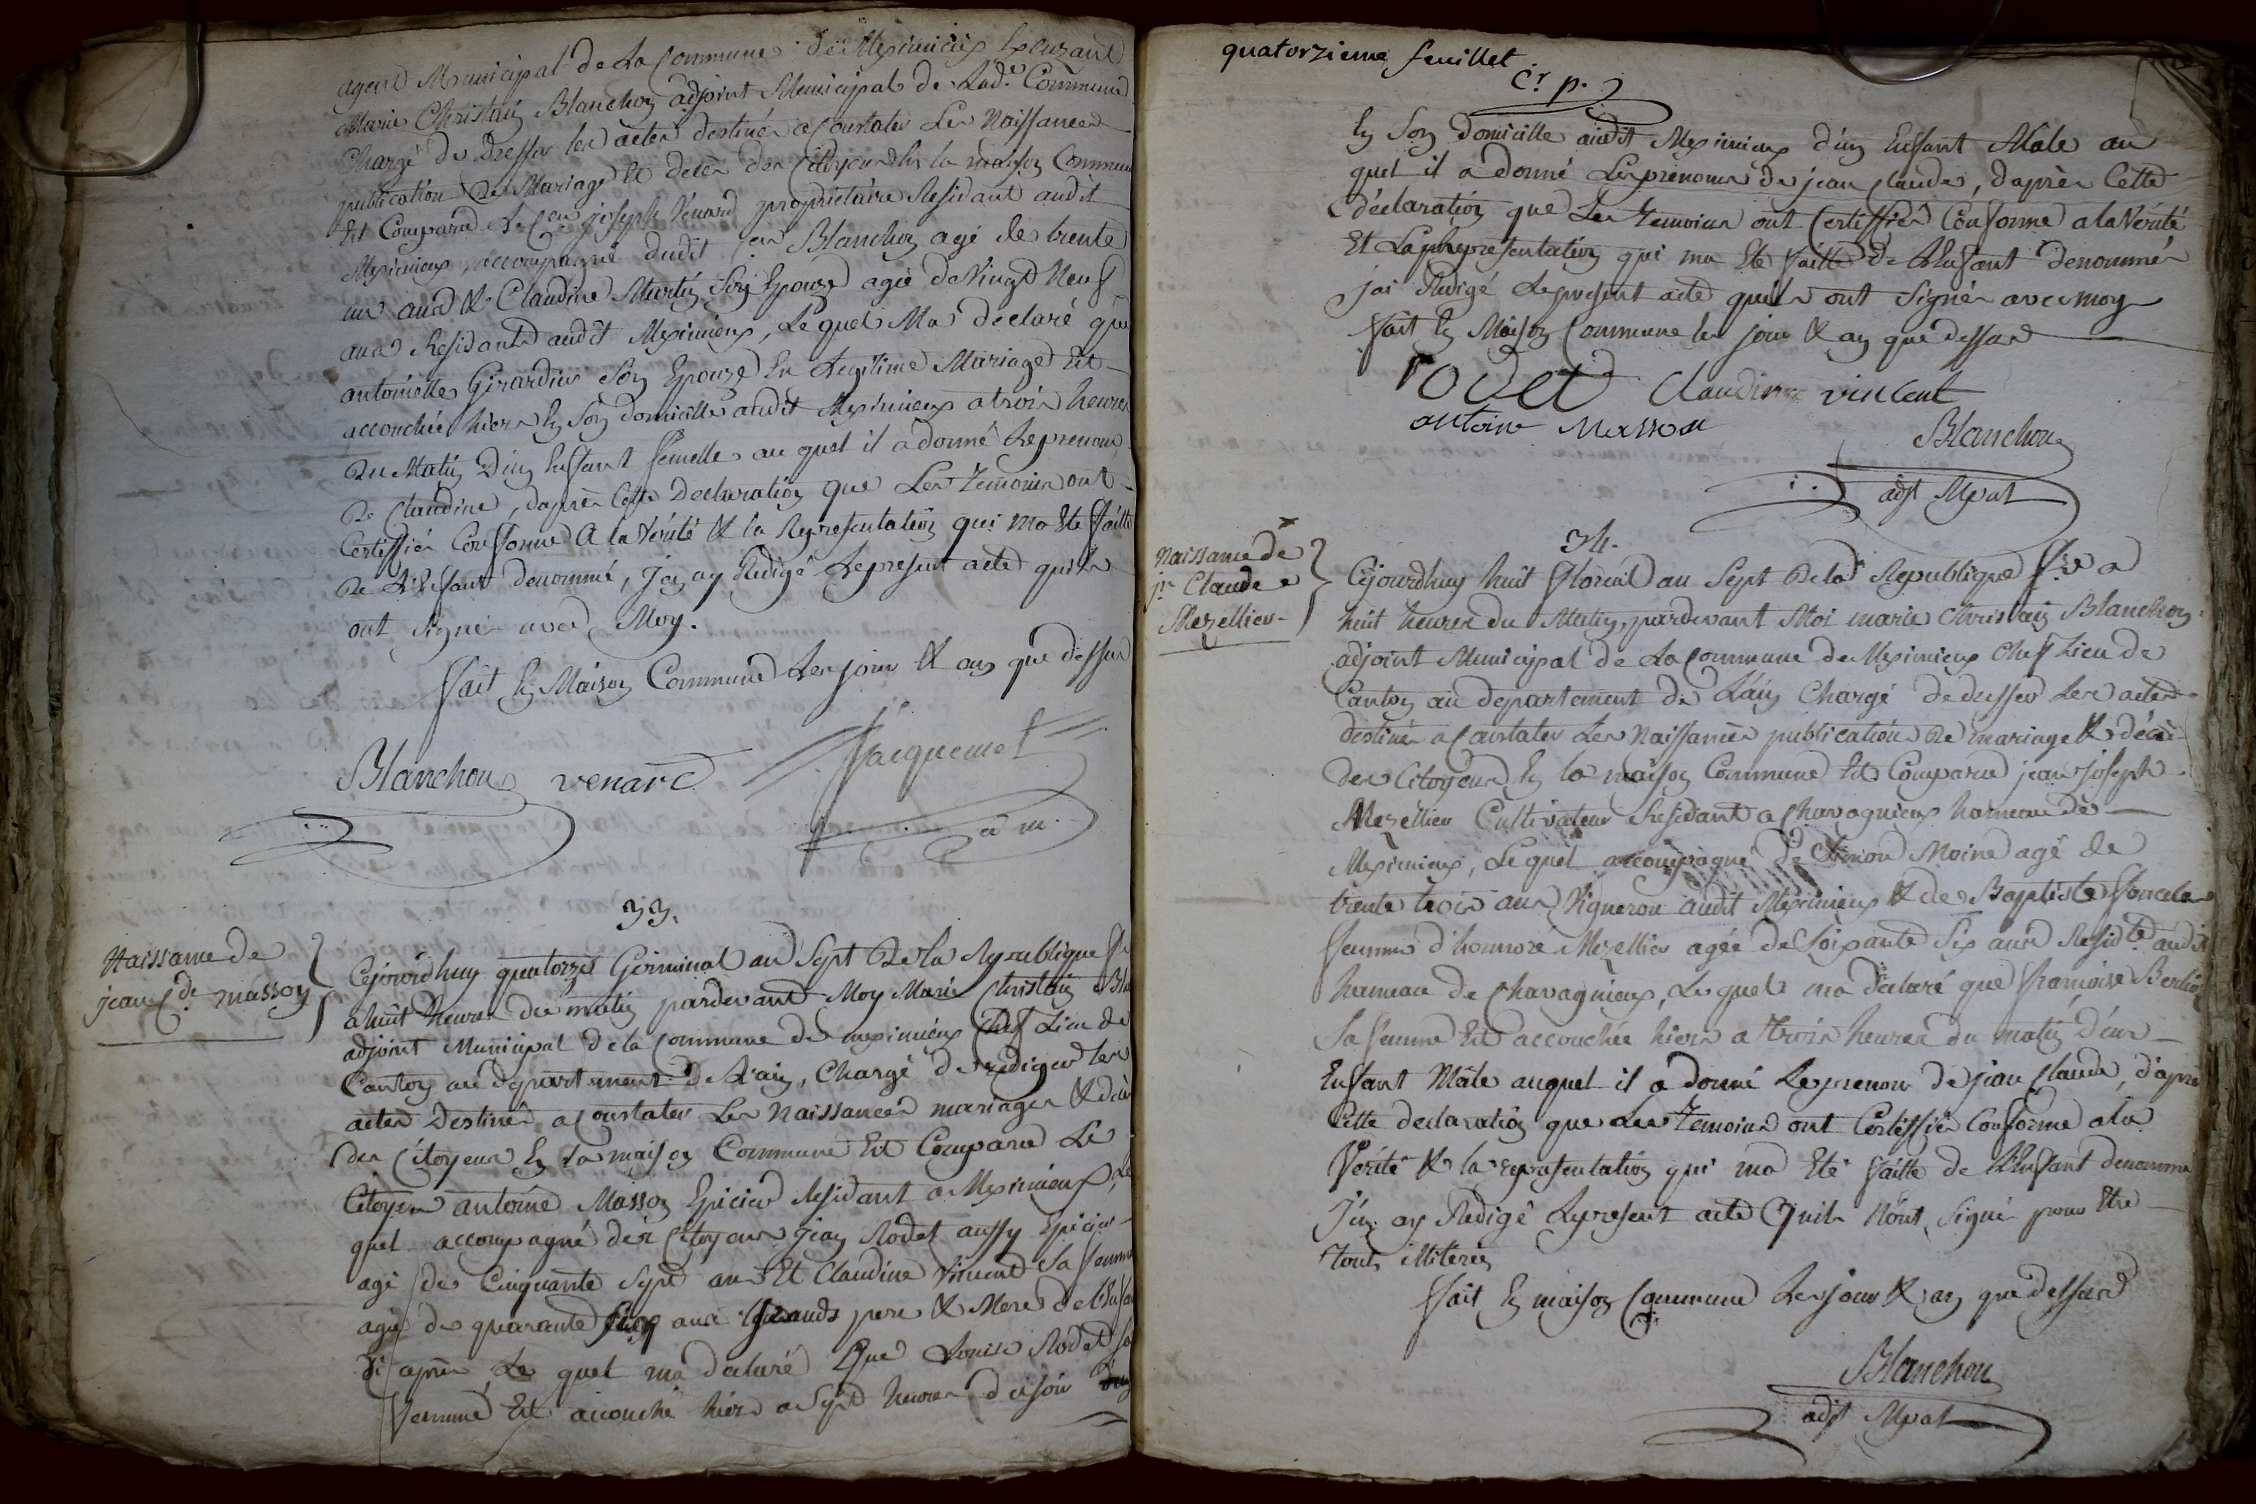 agent Municipal de La Commune de Meximieux Excusant
Marie Christain Blanchon adjoint Municipal de Lad.e Commune
Chargé de Dresser les actes destinés a Constater Les Naissances
publication De Mariage Et décès des Citoyens En la maison Commune
Est Comparu Le C.en joseph Vénard propriétaire Residant audit
Meximieux, accompagné dudit C.en Blanchon agé de trente
un ans & Claudine Martin Son Epouze agée de Vingt Neuf
ans Residants audit Meximieux, Lequel Ma declaré que
antoinette Girardin Son Epouze En Legitime Mariage Est
accouchée hiers En Son domicille audit Meximieux a trois heures
Du Matin D'un Enfant femelle au quel il a donné Le prenom
De Claudine, daprès Cette Declaration que Les Temoins ont
Certiffiés Conforme A la Vérité & la Representation qui ma Eté faitte
De L'Enfant denommé, J'en ay Redigé Le present acte quils
ont Signés avec Moy.
fait En Maison Commune Les jour & an que dessus
Blanchon venard Jacquemet
a m.
33.
Naissance de
jean C.de masson
Cejourdhuy quatorze Germinal an Sept De la Republique f.
a huit heures du matin pardevant Moy Marie Christain Bla
adjoint Municipal de la Commune de meximieux Chef Lieu de
Canton au departement De L'ain, Chargé de rediger les
actes Destinés a Constater Les Naissances mariages & décès
des Citoyens En La maison Commune Est Comparu Le
Citoyen antoine Masson Epicier Residant a Meximieux, Le
quel accompagné des Citoyens Jean Rodet aussy Epicier
agé de Cinquante Sept ans Et Claudine Vincent Sa femme
agée de quarante ans Grands pere & Mere de l'Enfan
Ci après, Le quel ma declaré Que Louise Rodet sa
femme Est accouché hiers a Sept heures du soir d'un
quatorzieme feuillet
C.r p.
En Son domicille audit Meximieux d'un Enfant Male au
quel il a donné Les prenoms de jean Claude, daprès Cette
déclaration que Les Temoins ont Certiffiés Conforme a la Vérité
Et La representation qui ma Eté faitte de L'Enfant denommé
j'ai Redigé Le present acte quils ont Signés avec moy
fait En Maison Commune les jour & an que dessus
rodet Claudine vincent
antoine Masson
Blanchon
adjt Mpal
34.
Naissance de
jn Claude
Mezellier
Cejourdhuy huit floréal an Sept De la Republique f.se a
huit heures du Matin, pardevant Moi marie Christain Blanchon
adjoint Municipal de La Commune de Meximieux Chef Lieu de
Canton au departement de L'ain Chargé de dresser Les actes
destinés a Constater Les Naissances publication De mariage & décès
des Citoyens En la maison Commune Est Comparu jean joseph
Mezellier Cultivateur Residant a Chavagnieux hameau de
Meximieux, Lequel accompagné De Simon Moine agé de
trente trois ans Vigneron audit Meximieux & de Baptiste
femme d'honnoré Mezellier agée de Soixante Six ans Resid.te audit
hameau de Chavagnieux, Lequel ma déclaré que françoise Berlion
Sa femme Est accouchée hiers a trois heures du matin D'un
Enfant Mâle auquel il a donné Le prenom de jean Claude, d'après
Cette declaration que Les Temoins ont Certiffiés Conforme a la
Vérité & la representation qui ma Eté faitte de L'Enfant denommé
J'en ay Redigé Le present acte Quils N'ont Signé pour Etre
touts illiterés
fait En maison Commune Les jour & an que dessus
Blanchon
adjt Mpal